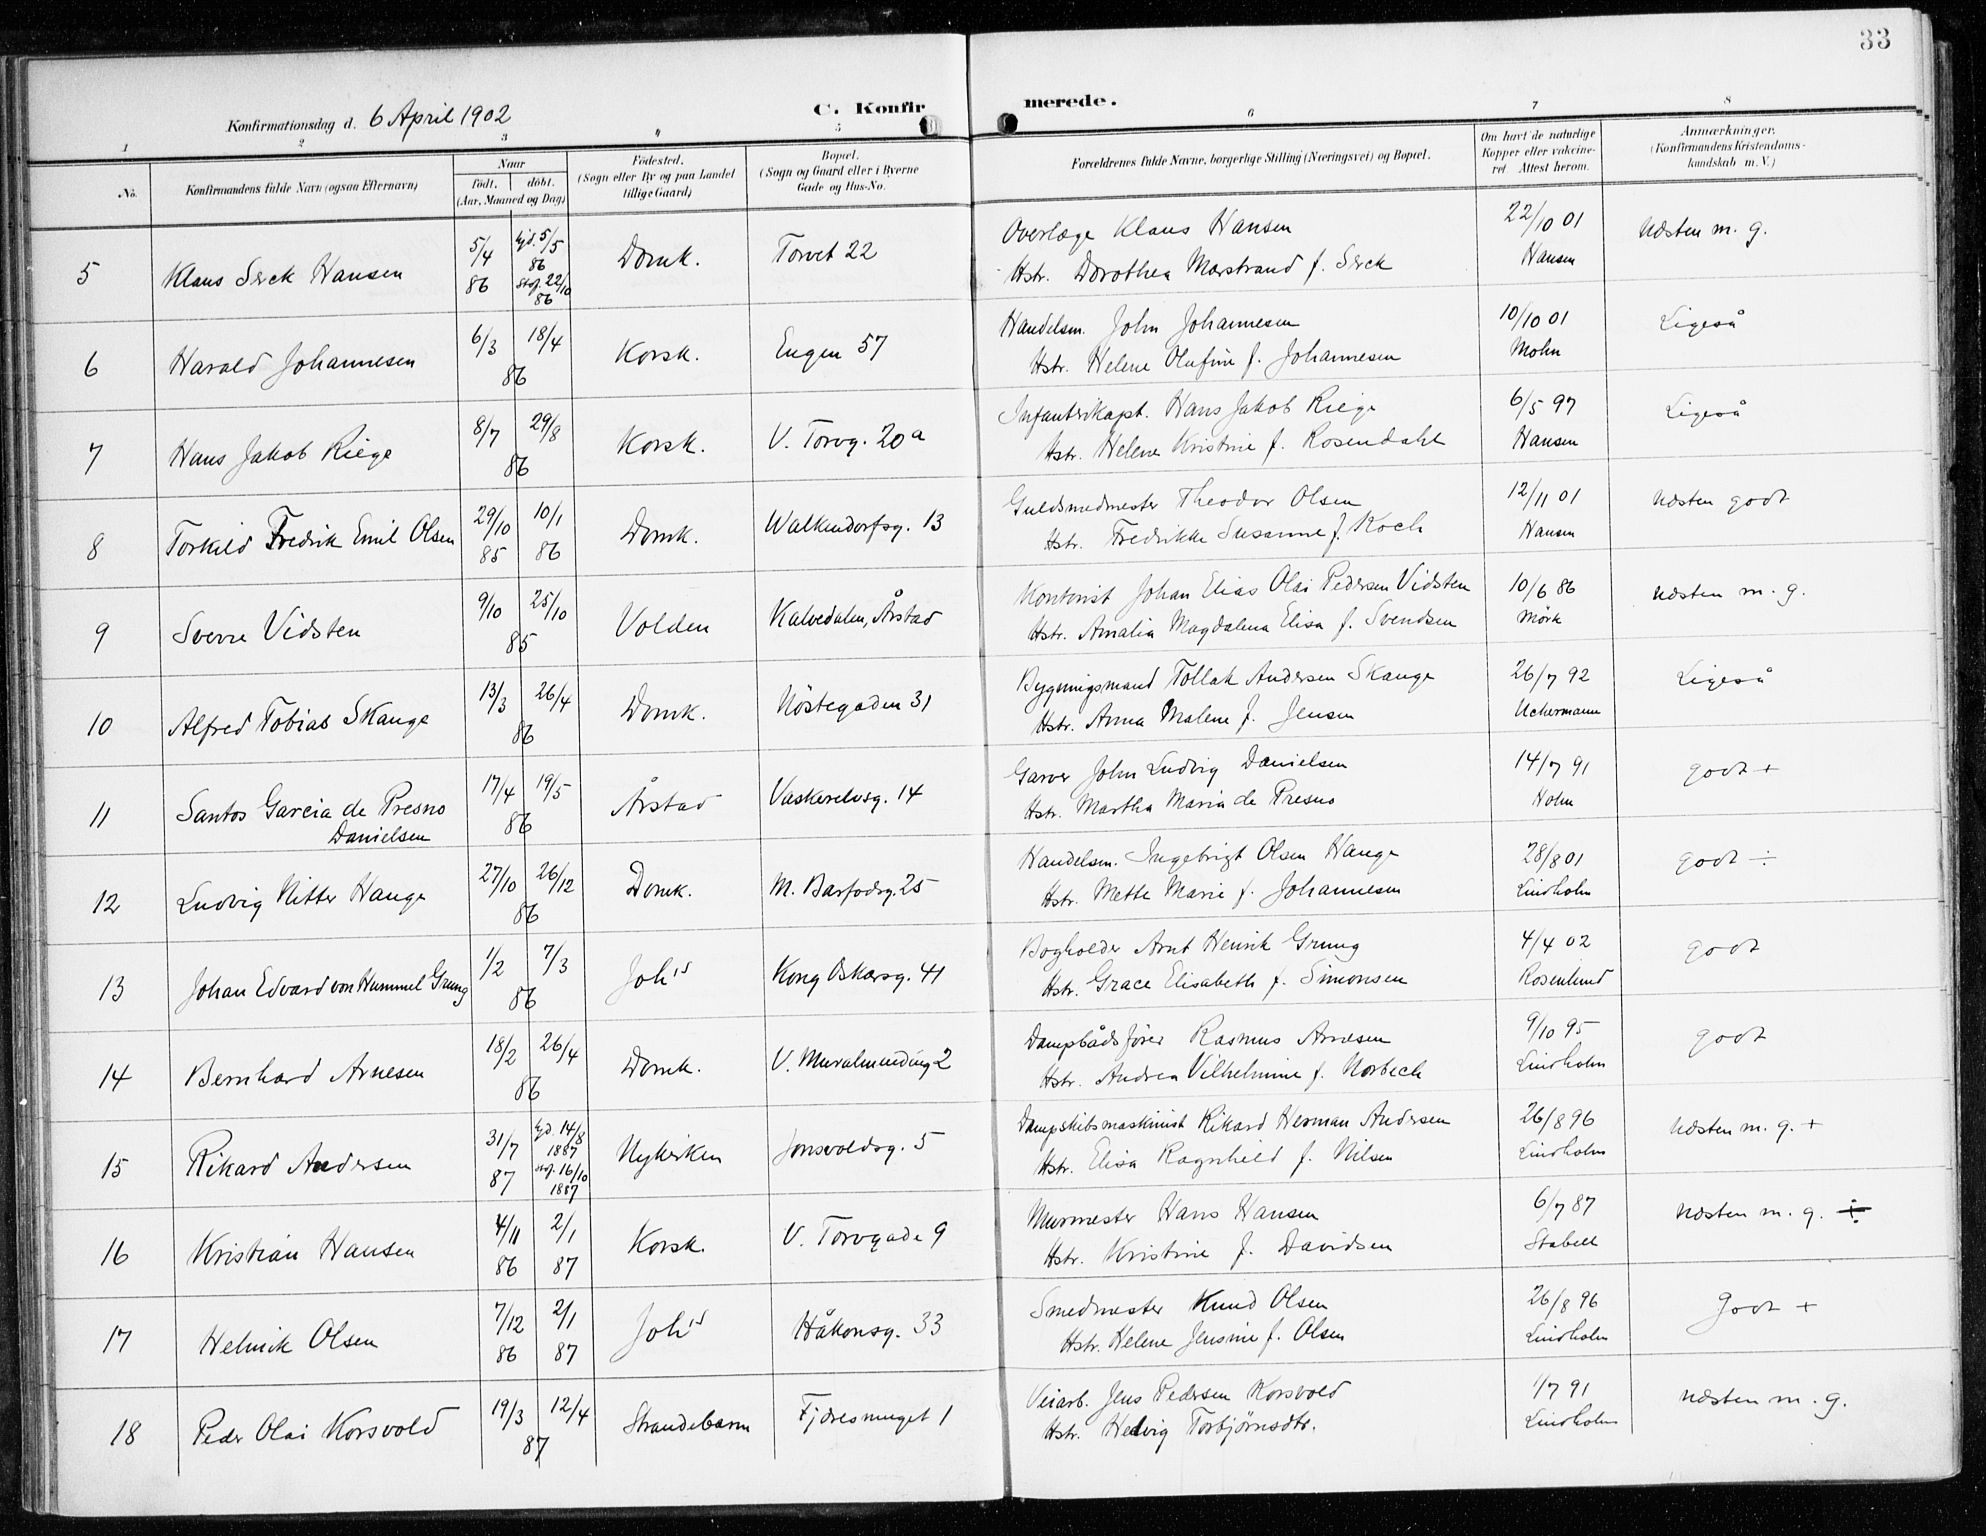 33
Konfirmationsdag d. 6 April 1902
C. Konfirmerede.
1 2 3 4 5 6 7 8
No. Konfirmandens fulde Navn (ogsaa Efternavn)
Naar født. døbt. (Aar, Maaned og Dag)
Fødested. (Sogn eller By og paa Landet tillige Gaard)
Bopæl. (Sogn og Gaard eller i Byerne Gade og Hus-No.
Forældrenes fulde Navne, borgerlige Stilling (Næringsvei) og Bopæl.
Om havt de naturlige Kopper eller vakcineret. Attest herom.
Anmærkninger. (Konfirmandens Kristendomskundskab m. V.)
5 Klaus Serck Hansen 5/4 86 hjd. 5/5 86 stdf. 22/10 86 Domk. Torvet 22 Overlæge Klaus Hansen 22/10 01 Næsten m. g.
Hstr. Dorothea Marstrand f. Serck Hansen
6 Harald Johannesen 6/3 18/4 86 Korsk. Engen 57 Handelsm. John Johannesen 10/10 01 Ligeså
Hstr. Helene Olufine f. Johannesen Mohn
7 Hans Jakob Riege 8/7 29/8 86 Korsk. V. Torvg. 20a Infanterikapt. Hans Jakob Riege 6/5 97 Ligeså
Hstr. Helene Kristine f. Rosendahl Hansen
8 Torkild Fredrik Emil Olsen 29/10 85 10/1 86 Domk. Walkendorfsg. 13 Guldsmedmester Theodor Olsen 12/11 01 Næsten godt
Hstr. Fredrikke Susanne f. Koch Hansen
9 Sverre Vidsten 9/10 25/10 85 Volden Kalvedalen, Årstad Kontorist Johan Elias Olai Pedersen Vidsten 10/6 86 Næsten m. g.
Hstr. Amalia Magdalena Elisa f. Svendsen Mörk
10 Alfred Tobias Skauge 13/3 26/4 86 Domk. Nöstegaden 31 Bygningsmand Tollak Andersen Skauge 26/7 92 Ligeså
Hstr. Anna Malene f. Jensen Uchermann
11 Santos Garcia de Presno Danielsen 17/4 19/5 86 Årstad Vaskerelvsg. 14 Garver John Ludvig Danielsen 14/7 91 godt +
Hstr. Martha Maria de Presno Holm
12 Ludvig Nitter Hauge 27/10 26/12 86 Domk. M. Barfodsg. 25 Handelsm. Ingebrigt Olsen Hauge 28/8 01 godt ÷
Hstr. Mette Marie f. Johannesen Lindholm
13 Johan Edvard von Hummel Grung 1/2 7/3 86 Joh's Kong Oskarsg. 41 Bogholder Arnt Henrik Grung 4/4 02 godt
Hstr. Grace Elisabeth f. Simonsen Rosenlund
14 Bernhard Arnesen 18/2 26/4 86 Domk. V. Muralmending 2 Dampbådsfører Rasmus Arnesen 9/10 95 godt
Hstr. Andrea Vilhelmine f. Norbech Lindholm
15 Rikard Andersen 31/7 87 hjd. 14/8 1887 stdf. 16/10 1887 Nykirken Jonsvoldsg. 5 Dampskibsmaskinist Rikard Herman Andersen 26/8 96 Næsten m. g. +
Hstr. Elisa Ragnhild f. Nilsen Lindholm
16 Kristian Hansen 4/11 86 2/1 87 Korsk. V. Torvgade 9 Murmester Hans Hansen 6/7 87 Næsten m. g. ÷
Hstr. Kristine f. Davidsen Stabell
17 Helmik Olsen 7/12 86 2/1 87 Joh's Håkonsg. 33 Smedmester Knud Olsen 26/8 96 Godt +
Hstr. Helene Jensine f. Olsen Lindholm
18 Peder Olai Korsvold 19/3 12/4 87 Strandebarm Fjæresmuget 1 Veiarb. Jens Pedersen Korsvold 1/7 91 Næsten m. g.
Hstr. Hedvig Torbjørnsdtr. Lindholm